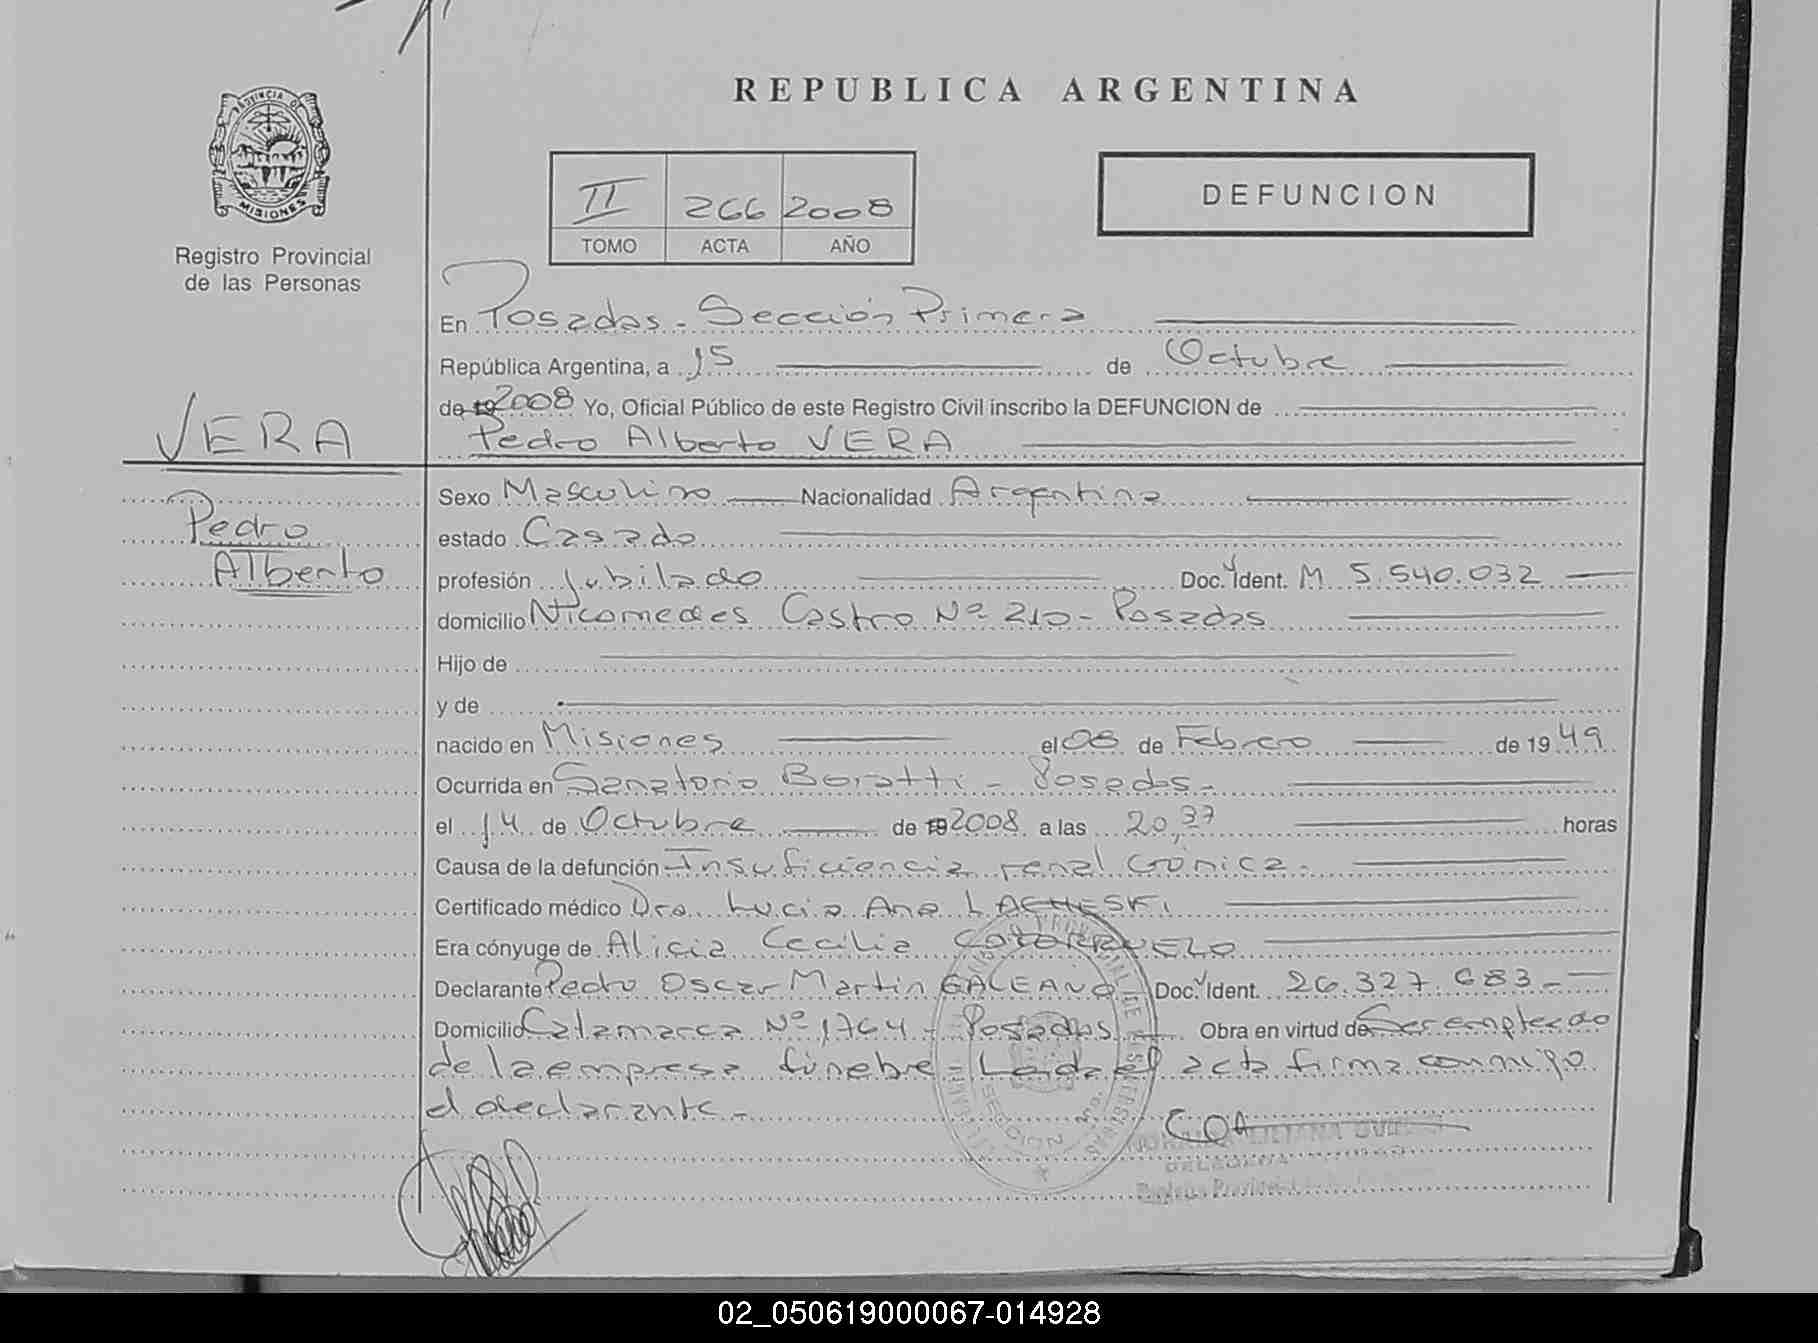 REPUBLICA ARGENTINA
PROVINCIA DE
MISIONES
Registro Provincial
de las Personas
II 266 2008
TOMO ACTA AÑO
DEFUNCION
En Posadas - Sección Primera
República Argentina, a 15 de Octubre
de 19 2008 Yo, Oficial Público de este Registro Civil inscribo la DEFUNCION de
VERA
Pedro Alberto VERA
Pedro
Alberto
Sexo Masculino Nacionalidad Argentina
estado Casado
profesión Jubilado Doc. Ident. M 5.540.032
domicilio Nicomedes Castro Nº 210 - Posadas
Hijo de
y de
nacido en Misiones el 08 de Febrero de 1949
Ocurrida en Sanatorio Boratti - Posadas -
el 14 de Octubre de 19 2008 a las 20,37 horas
Causa de la defunción Insuficiencia renal crónica.
Certificado médico Dra. Lucia Ana LACHESKI
Era cónyuge de Alicia Cecilia COTORRUELO
Declarante Pedro Oscar Martin GALEANO Doc. Ident. 26.327.683 -
Domicilio Catamarca Nº 1764 - Posadas Obra en virtud de Ser empleado
de la empresa fúnebre - Leida el acta firma conmigo
el declarante -
SECCION
LILIANA
02_050619000067-014928